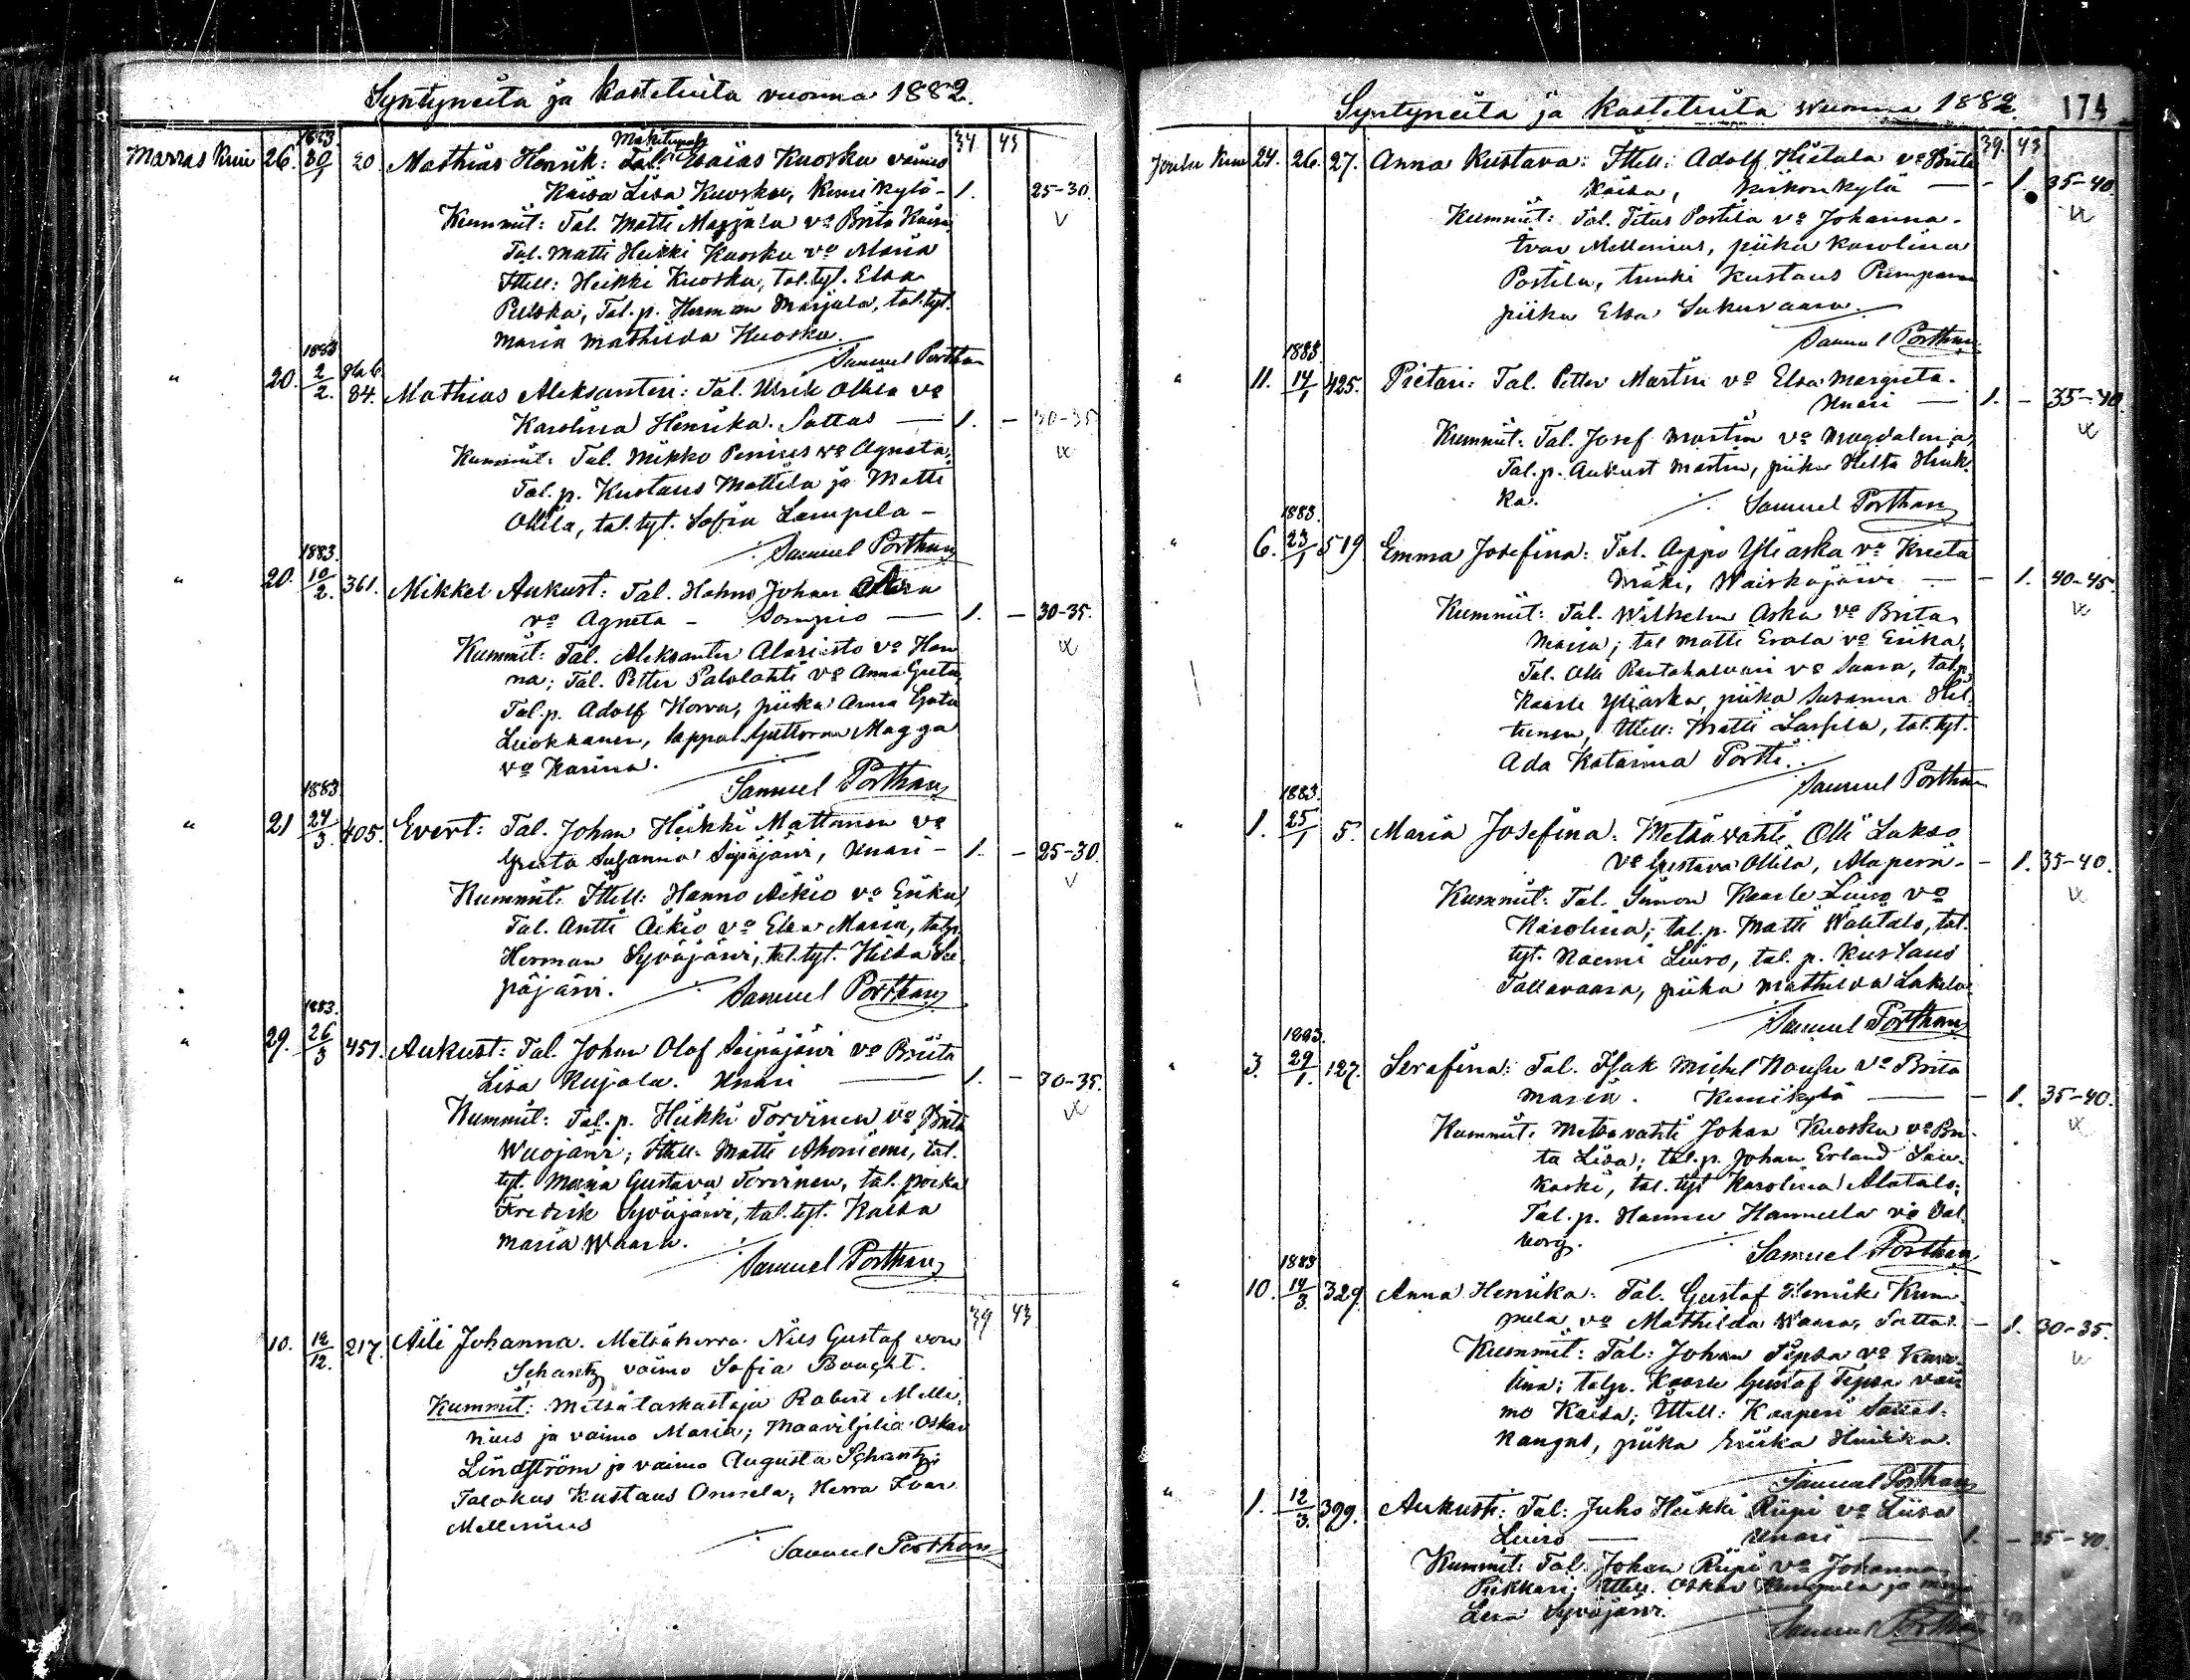 Syntyneitä ja kastetuita vuonna 1882.
1883. Mäkitupal. 34 43
Marras kuu 26. 30/1 20. Mathias Henrik: Tal. Esaias Kuosku vaimo
Kaisa Lisa Kuosku, Kemikylä – 1. 25-30.
Kummit: Tal. Matti Marjala vo Brita Kaisa
Tal. Matti Heikki Kuosku vo Maria
Ittell: Heikki Kuosku, tal. tyt. Elsa
Pulska, Tal. p. Herman Marjala, tal. tyt.
Maria Mathilda Kuosku.
Samuel Porthan
1883
" 20. 2/2. 84. Mathias Aleksanteri: Tal. Ulrik Ollila vo
Karolina Henrika. Sattas — 1. – 30-35
Kummit: Tal. Mikko Penius vo Agneta,
Tal. p. Kustaus Mattila ja Matti
Ollila, tal. tyt. Sofia Lampela –
Samuel Porthan
1883.
" 20. 10/2. 361. Mikkel Aukust: Tal. Hahno Johan
vo Agneta – Sompio — 1. – 30-35.
Kummit: Tal. Aleksanter Alariesto vo Han
na; Tal. Petter Palolahti vo Anna Greta,
Tal. p. Adolf Korva, piika Anna Greta
Luokkanen, lappal. Guttorm Magga
vo Karina.
Samuel Porthan
1883
" 21 24/3. 405. Evert: Tal. Johan Heikki Mattanen vo
Greta Susanna Siipäjärvi, Unari – 1. – 25-30.
Kummit: Ittell: Hanno Aikio vo Erika,
Tal. Antti Aikio vo Elsa Maria, tal. p.
Herman Syväjärvi, tal. tyt. Hilda Sii
päjärvi.
Samuel Porthan
1883.
" 29. 26/3 451. Aukust: Tal. Johan Olof Seipäjärvi vo Briita
Lisa Kujala. Unari — 1. – 30-35.
Kummit: Tal. p. Heikki Torvinen vo Brita
Wuojärvi; Ittell. Matti Ahoniemi, tal.
tyt. Maria Gustava Torvinen, tal. poika
Fredrik Syväjärvi, tal. tyt. Kaisa
Maria Waara.
Samuel Porthan
39 43
10. 12/12. 217. Aili Johanna. Metsäherra Nils Gustaf von
Schantz vaimo Sofia Bought.
Kummit: Metsätarkastaja Robert Melle
nius ja vaimo Maria; Maaviljeliä Oskar
Lindström ja vaimo Augusta Schantz;
Talokas Kustaus Onnela, Herra Ivar
Mellenius
Samuel Porthan
Syntyneitä ja kastetuita wuonna 1882. 174
39. 43
Joulu kuu 24. 26. 27. Anna Kustava: Ittell: Adolf Hietala vo Brita
Kaisa, Kirkonkylä — – 1. 35-40
Kummit: Tal. Titus Postila vo Johanna.
Ivar Mellenius, piika Karolina
Postila, renki Kustaus Pumpanen
piika Elsa Sakuvaara.
Samuel Porthan
1883.
" 11. 14/1 425. Pietari: Tal. Petter Martin vo Elsa Margreta.
Unari — 1. – 35-40.
Kummit: Tal. Josef Martin vo Magdalena,
Tal. p. Aukust Martin, piika Hilta Huik
ka.
Samuel Porthan
1883.
" 6. 23/1 519 Emma Josefina: Tal. Aappo Yliaska vo Kreeta
Mäki, Waiskojärvi — – 1. 40-45.
Kummit: Tal. Wilhelm Aska vo Brita
Maija; tal Matti Erola vo Erika,
Tal. Olli Rautahalvari vo Saara, tal. p.
Kaarle Yliaska, piika Susanna Hil
tunen, Ittell: Matti Lassila, tal. tyt.
Ada Katariina Portti.
Samuel Porthan
1883.
" 1. 25/1 5. Maria Josefina: Metsävahti Olli Lakso
vo Gustava Ollila, Alaperä – – 1. 35-40.
Kummit: Tal. Simon Kaarle Liiro vo
Karolina; tal. p. Matti Wälitalo, tal.
tyt. Naemi Liiro, tal. p. Kustaus
Tallavaara, piika Mathilda Lakela
Samuel Porthan
1883.
" 3. 29/1. 127. Serafina: Tal. Isak Michel Kaulu vo Brita
Maria. Kemikylä — – 1. 35-40.
Kummit: Metsävahti Johan Kuosku vo Bri
ta Liisa; tal. p. Johan Erland Sau
koski, tal. tyt Karolina Alatalo;
Tal. p. Hannu Hannula vo Val
borg.
Samuel Porthan
1883
" 10. 14/3. 329. Anna Henrika: Tal. Gustaf Henrik Kum
pula vo Mathilda Waara, Sattas. – 1. 30-35.
Kummit: Tal: Johan Tepsa vo Karo
lina; tal. p. Kaarle Gustaf Tepsa vai
mo Kaisa; Ittell: Kasperi Sattas
kangas, piika Eriika
Samuel Porthan
" 1. 12/3. 399. Aukusti: Tal: Juho Heikki Riipi vo Liisa
Luiro — Unari — 1. – 35-40.
Kummit: Tal. Johan Riipi vo Johanna
Pikkari; Ittell. Oskar Kumpula ja
Lisa Syväjärvi.
Samuel Porthan